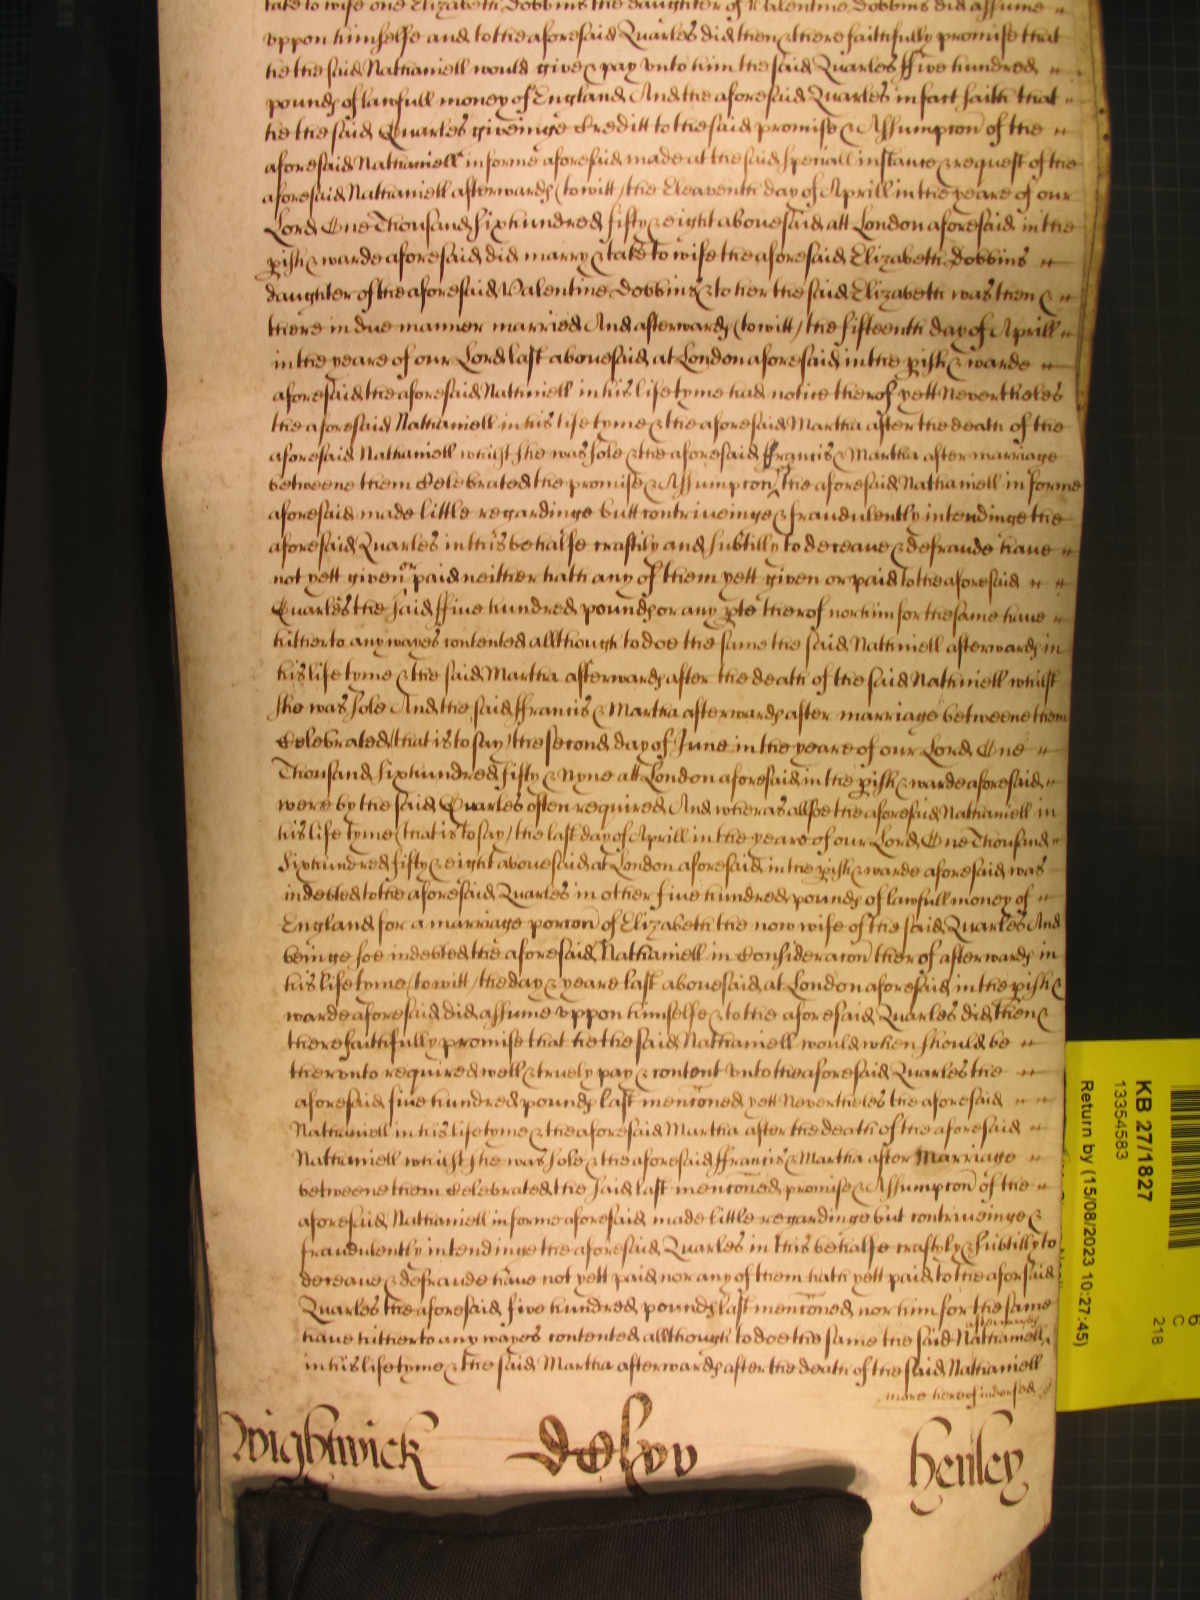 take to wife one Elizabeth Dobbins the daughter of Valentine Dobbins did assume
vppon himselfe and to the aforesaid Quarles did then & there faithfully promise that
he the said Nathaniell would give & pay vnto him the said Quarles ffive hundred
pounds of lawfull money of England And the aforesaid Quarles in fact saith that
he the said Quarles giveinge Creditt to the said promise & Assumpcon of the
aforesaid Nathaniell in forme aforesaid made at the said speciall instance & request of the
aforesaid Nathaniell afterwards (to witt) the Eleaventh day of Aprill in the yeare of our
Lord One Thousand six hundred fifty & eight abouesaid att London aforesaid in the
pish & warde aforesaid did marry & take to wife the aforesaid Elizabeth Dobbins
daughter of the aforesaid Valentine Dobbins & to her the said Elizabeth was then &
there in due manner married And afterwards (to witt) the fifteenth day of Aprill
in the yeare of our Lord last abouesaid at London aforesaid in the pish & warde
aforesaid the aforesaid Nathaniell in his life tyme had notice therof yett Nevertheles
the aforesaid Nathaniell in his life tyme & the aforesaid Martha after the death of the
aforesaid Nathaniell whilst she was sole & the aforesaid ffrancis & Martha after marriage
betweene them Celebrated the promise & Assumpcon of the aforesaid Nathaniell in forme
aforesaid made little regardinge butt contriveinge & fraudulently intendinge the
aforesaid Quarles in this behalfe craftily and subtilly to deceave & defraude have
not yett given or paid neither hath any of them yett given or paid to the aforesaid
Quarles the said ffive hundred pounds or any pte therof nor him for the same have
hitherto any wayes contented allthough to doe the same the said Nathniell afterwards in
his life tyme & the said Martha afterwards after the death of the said Nathniell whilst
she was sole And the said ffrancis & Martha afterwards after marriage betweene them
Celebrated (that is to say) the second day of June in the yeare of our Lord One
Thousand six hundred fifty & Nyne att London aforesaid in the pish & warde aforesaid
were by the said Quarles often required And wheras allsoe the aforesaid Nathaniell in
his life tyme (that is to say) the last day of Aprill in the yeare of our Lord One Thousand
six hundred fifty & eight abouesaid at London aforesaid in the pish & warde aforesaid was
indebted to the aforesaid Quarles in other five hundred pounds of lawfull money of
England for a marriage porcon of Elizabeth the now wife of the said Quarles And
beinge soe indebted the aforesaid Nathaniell in Consideracon therof afterwards in
his life tyme (to witt) the day & yeare last abouesaid at London aforesaid in the pish &
warde aforesaid did assume vppon himselfe & to the aforesaid Quarles did then &
there faithfully promise that he the said Nathaniell would when should be
thervnto required well & truely pay & content vnto the aforesaid Quarles the
aforesaid five hundred pounds last menconed yett Nevertheles the aforesaid
Nathaniell in his life tyme & the aforesaid Martha after the death of the aforesaid
Nathaniell whilst she was sole & the aforesaid ffrancis & Martha after Marriage
betweene them Celebrated the said last menconed promise & Assumpcon of the
aforesaid Nathaniell in forme aforesaid made little regardinge but contriveinge &
fraudulently intendinge the aforesaid Quarles in this behalfe craftyly & subtilly to
deceave & defraude have not yett paid nor any of them hath yett paid to the aforsaid
Quarles the aforesaid five hundred pounds last menconed nor him for the same
have hitherto any wayes contented allthough to doe the same the said Nathaniell afterwards
in his life tyme & the said Martha afterwards after the death of the said Nathaniell
more hereof indorsed
Wightwick
Henley
KB 27/1827
13354583
Return by (15/08/2023 10:27:45)
218
C
6